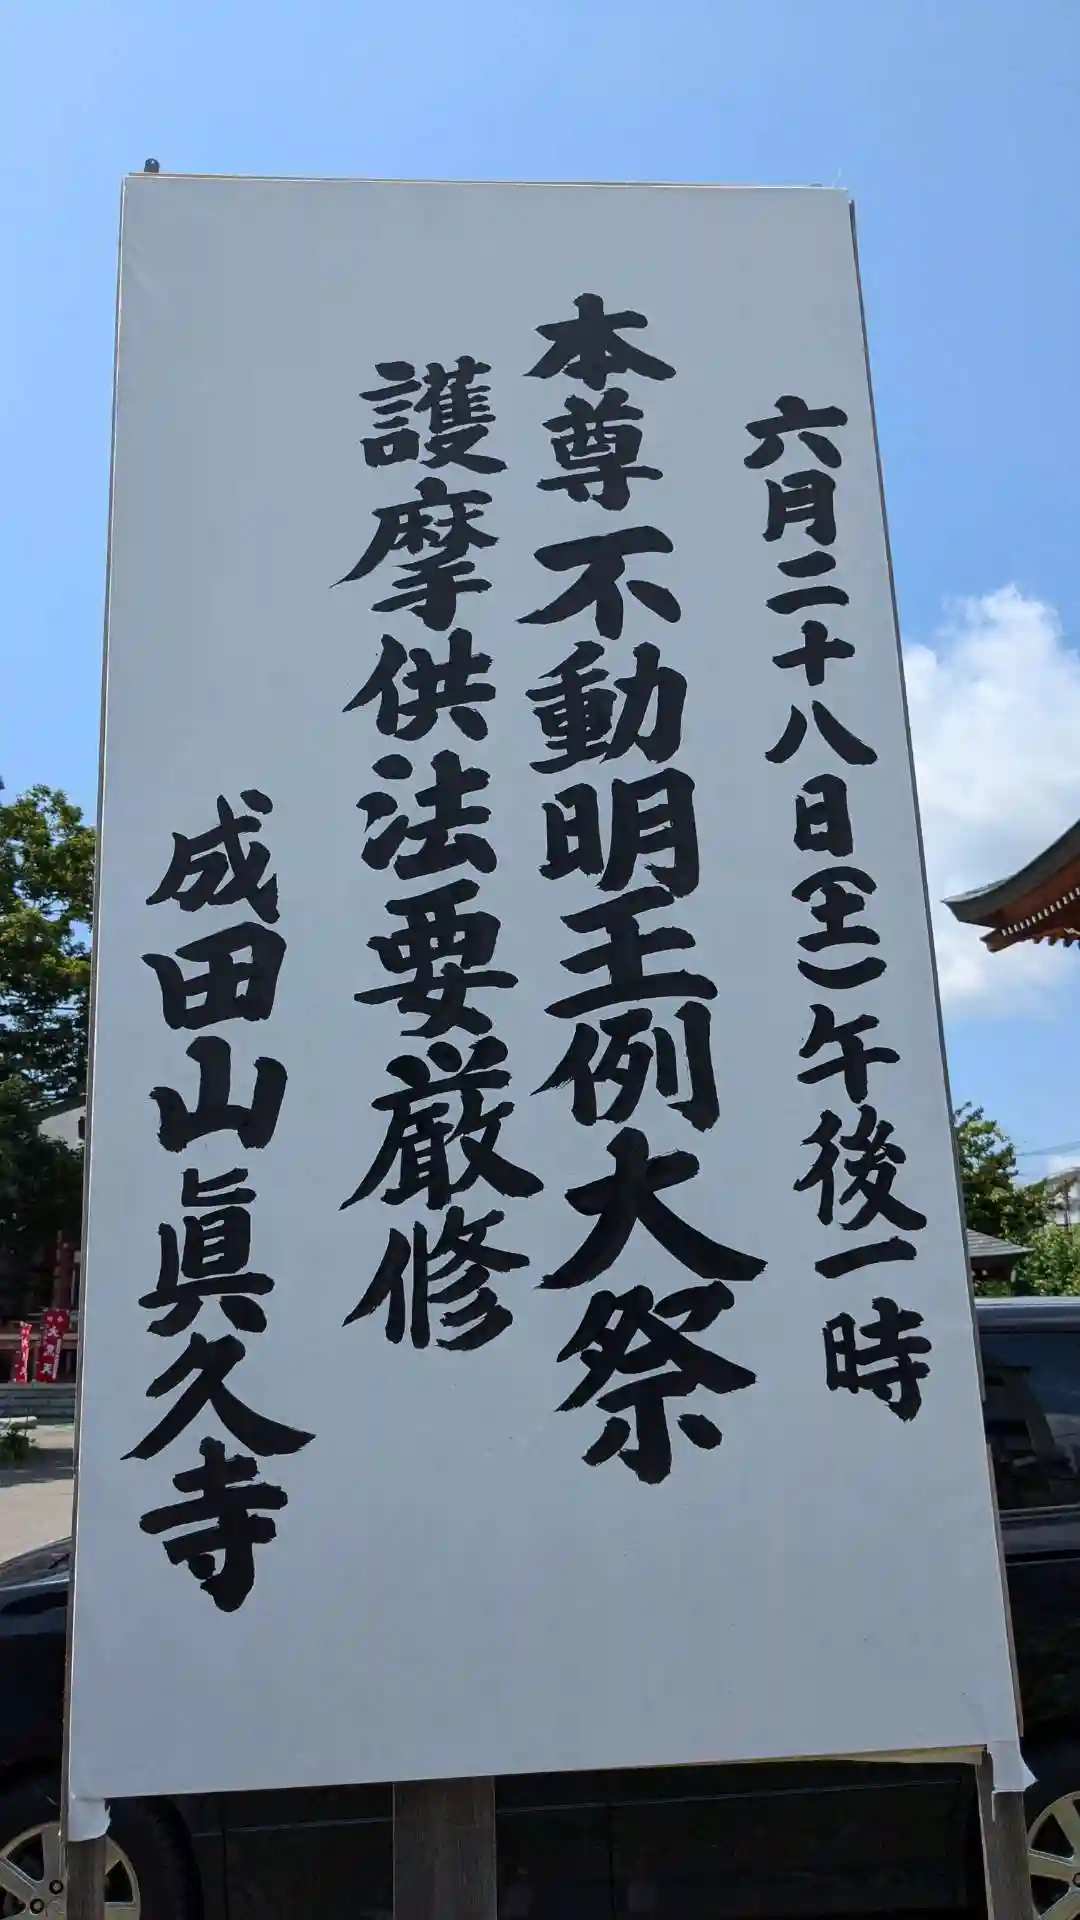 六月二十八日(土)午後一時
本尊不動明王例大祭
護摩供法要厳修
成田山眞久寺
大黒天